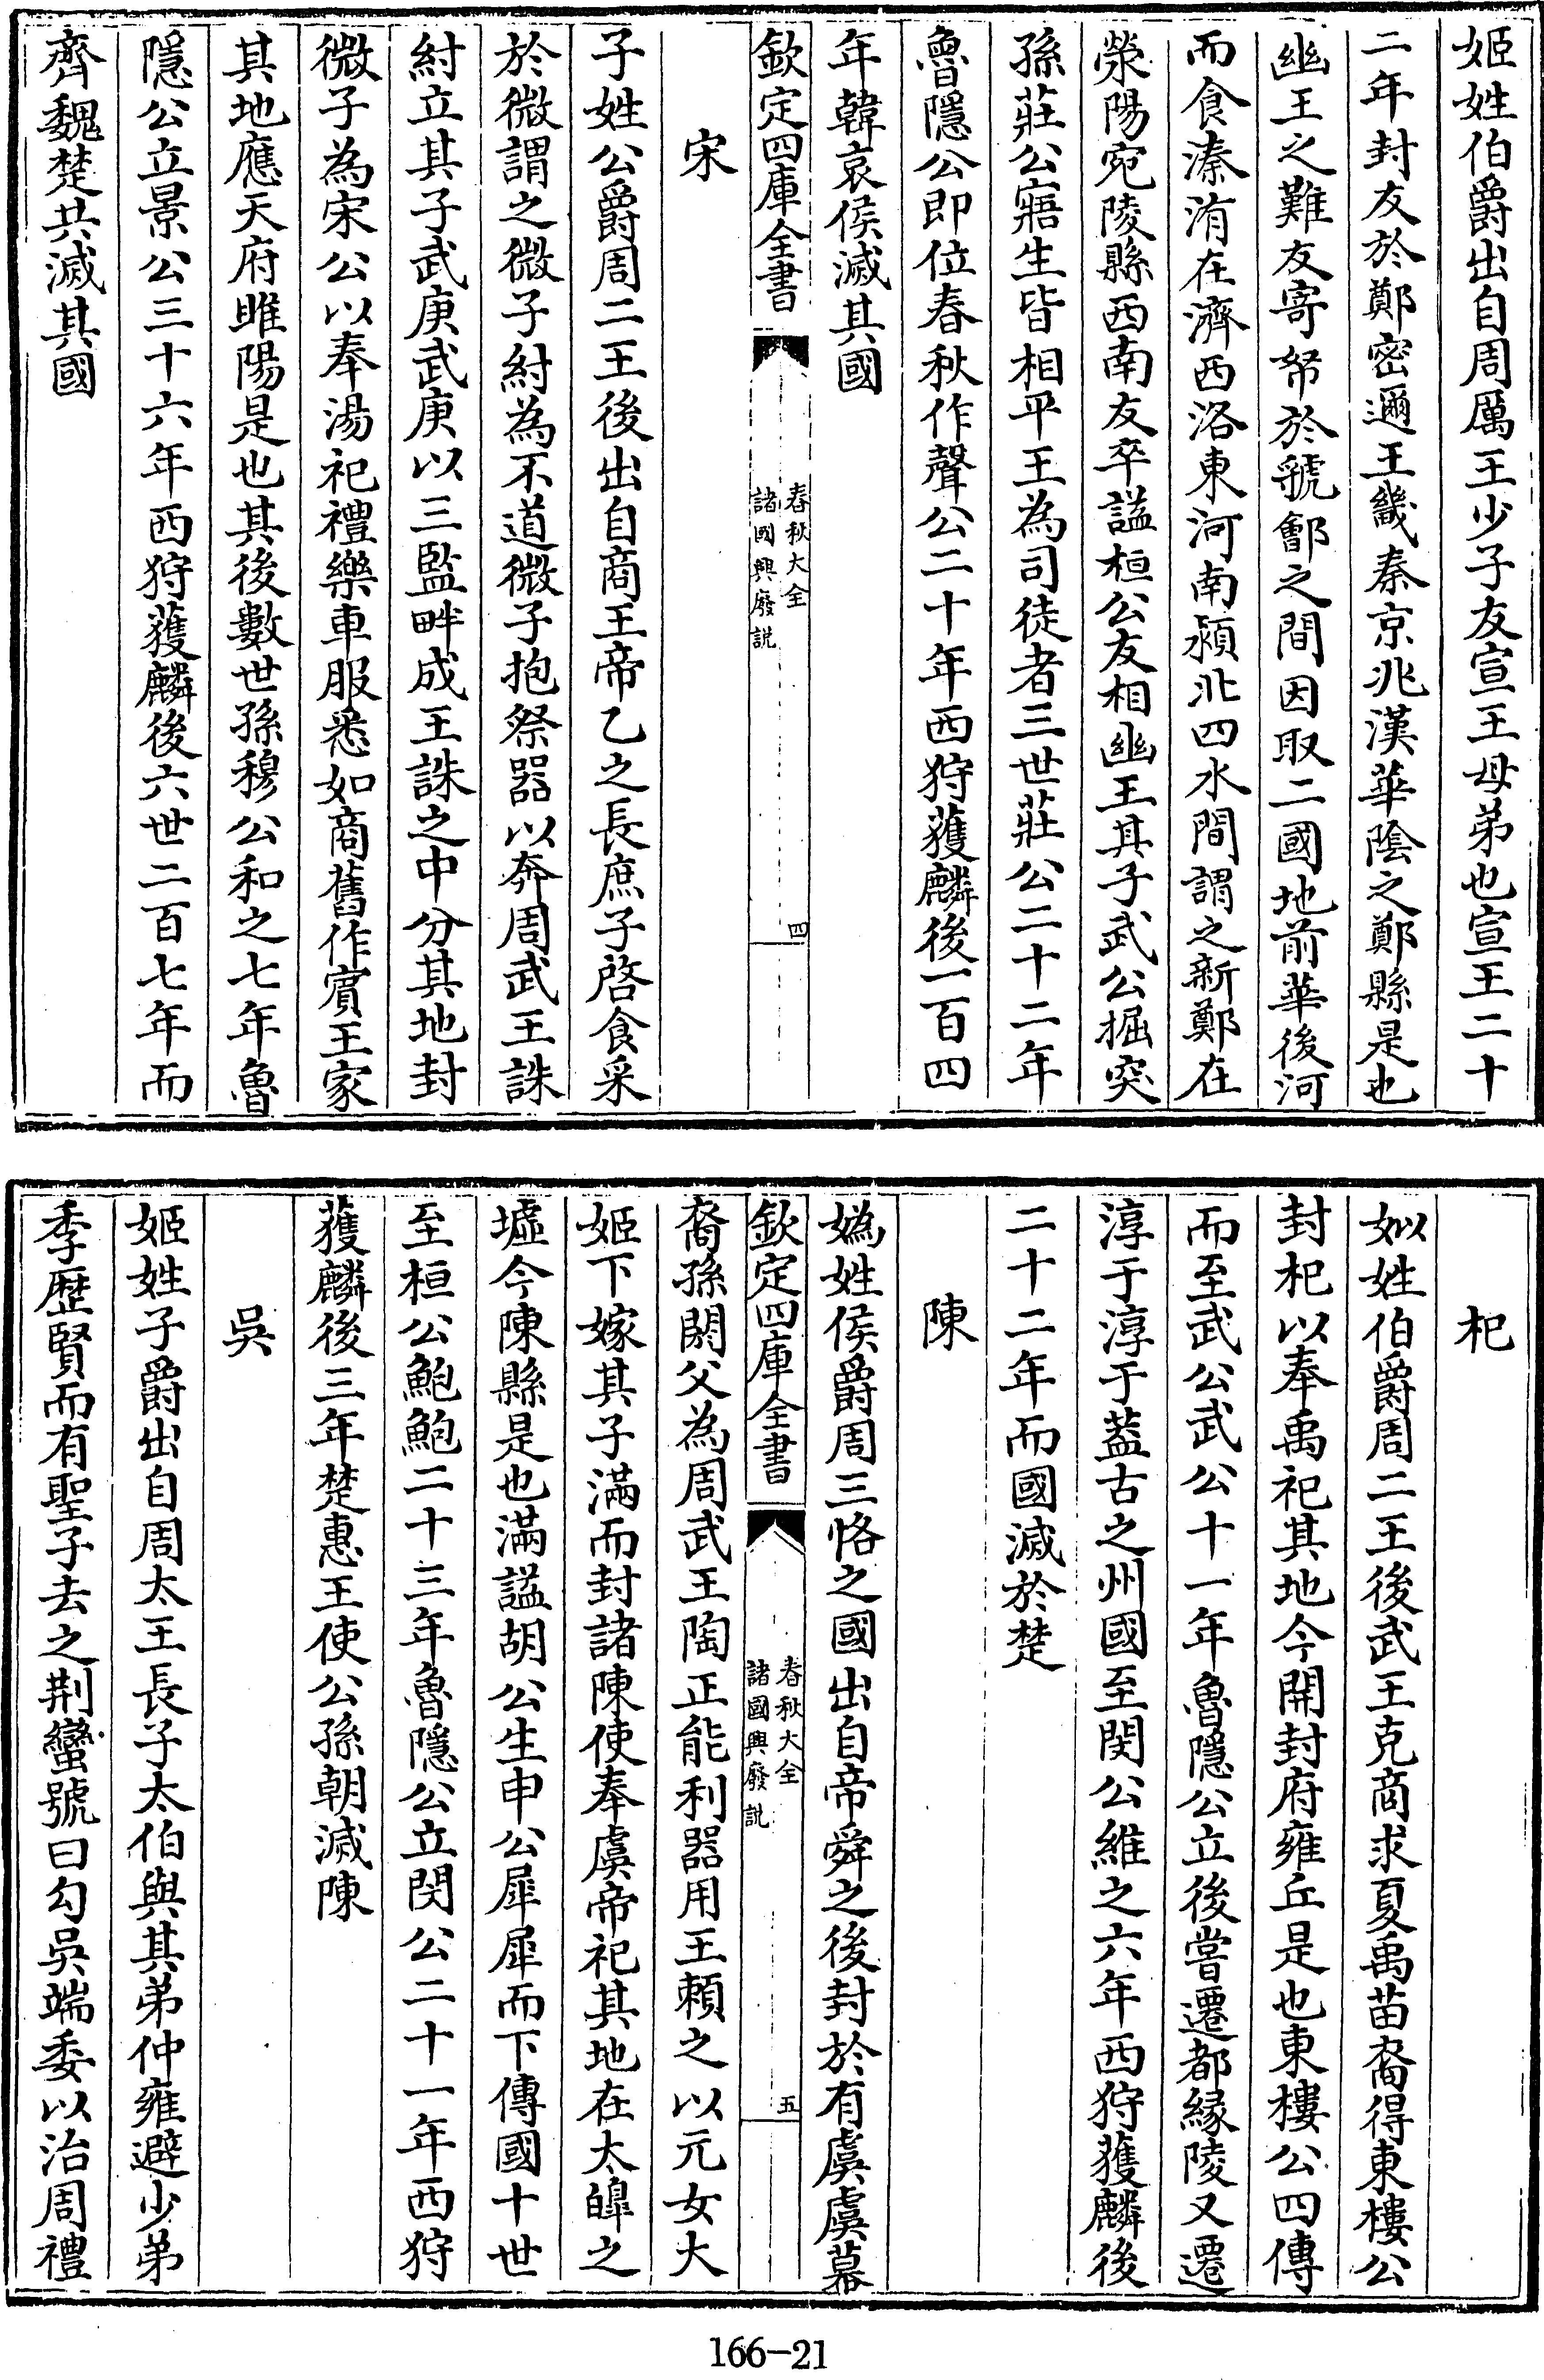 姬姓伯爵出自周厲王少子友宣王母弟也宣王二十
二年封友於鄭密邇王畿秦京兆漢華陰之鄭縣是也
幽王之難友寄帑於虢鄶之間因取二國地前華後河
而食溱洧在濟西洛東河南潁北四水間謂之新鄭在
滎陽宛陵縣西南友卒諡桓公友相幽王其子武公掘突
孫莊公寤生皆相平王為司徒者三世莊公二十二年
魯隱公即位春秋作聲公二十年西狩獲麟後一百四
年韓哀侯滅其國
欽定四庫全書
春秋大全
諸國興廢說
四
宋
子姓公爵周二王後出自商王帝乙之長庶子啓食采
於微謂之微子紂為不道微子抱祭器以奔周武王誅
紂立其子武庚武庚以三監畔成王誅之中分其地封
微子為宋公以奉湯祀禮樂車服悉如商舊作賓王家
其地應天府睢陽是也其後數世孫穆公和之七年魯
隱公立景公三十六年西狩獲麟後六世二百七年而
齊魏楚共滅其國
杞
姒姓伯爵周二王後武王克商求夏禹苗裔得東樓公
封杞以奉禹祀其地今開封府雍丘是也東樓公四傳
而至武公武公十一年魯隱公立後嘗遷都緣陵又遷
淳于淳于蓋古之州國至閔公維之六年西狩獲麟後
二十二年而國滅於楚
陳
媯姓侯爵周三恪之國出自帝舜之後封於有虞虞幕
欽定四庫全書
春秋大全
諸國興廢說
五
裔孫閼父為周武王陶正能利器用王賴之以元女大
姬下嫁其子滿而封諸陳使奉虞帝祀其地在太皥之
墟今陳縣是也滿諡胡公生申公犀犀而下傳國十世
至桓公鮑鮑二十三年魯隱公立閔公二十一年西狩
獲麟後三年楚惠王使公孫朝滅陳
吳
姬姓子爵出自周太王長子太伯與其弟仲雍避少弟
季歷賢而有聖子去之荆蠻號曰勾吳端委以治周禮
166-21